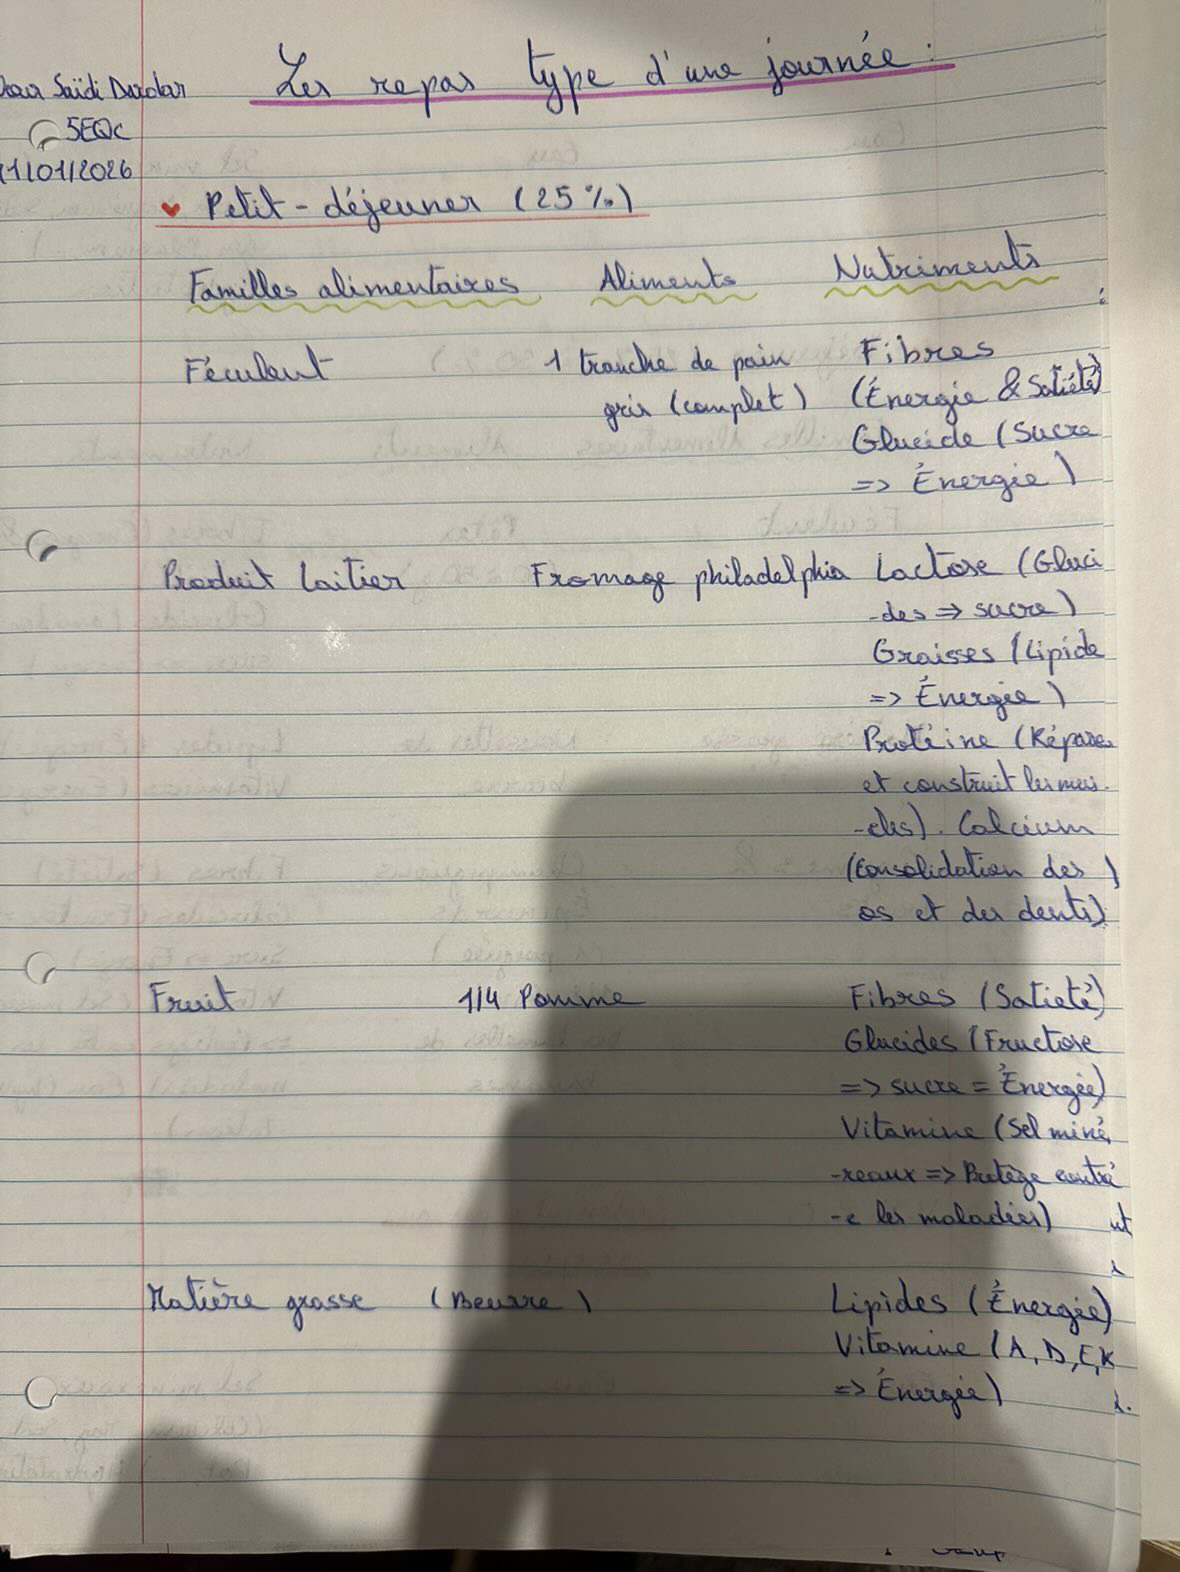 Les repas type d'une journée :
Saïdi Dardar
5EQc
1/01/2026
Petit-déjeuner (25%)
Familles alimentaires Aliments Nutriments
Féculent 1 tranche de pain Fibres
gris (complet) (Énergie & Satiété)
Glucide (Sucre
=> Énergie)
Produit laitier Fromage philadelphia Lactose (Gluci
-des => sucre)
Graisses (Lipide
=> Énergie)
Protéine (Répare
et construit les mus.
-cles). Calcium
(Consolidation des )
os et des dents)
Fruit 1/4 Pomme Fibres (Satieté)
Glucides (Fructose
=> sucre = Énergie)
Vitamine (Sel miné
-reaux => Protège contr
-e les maladies)
Matière grasse (Beurre) Lipides (Énergie)
Vitamine (A, D, E, K
=> Énergie)